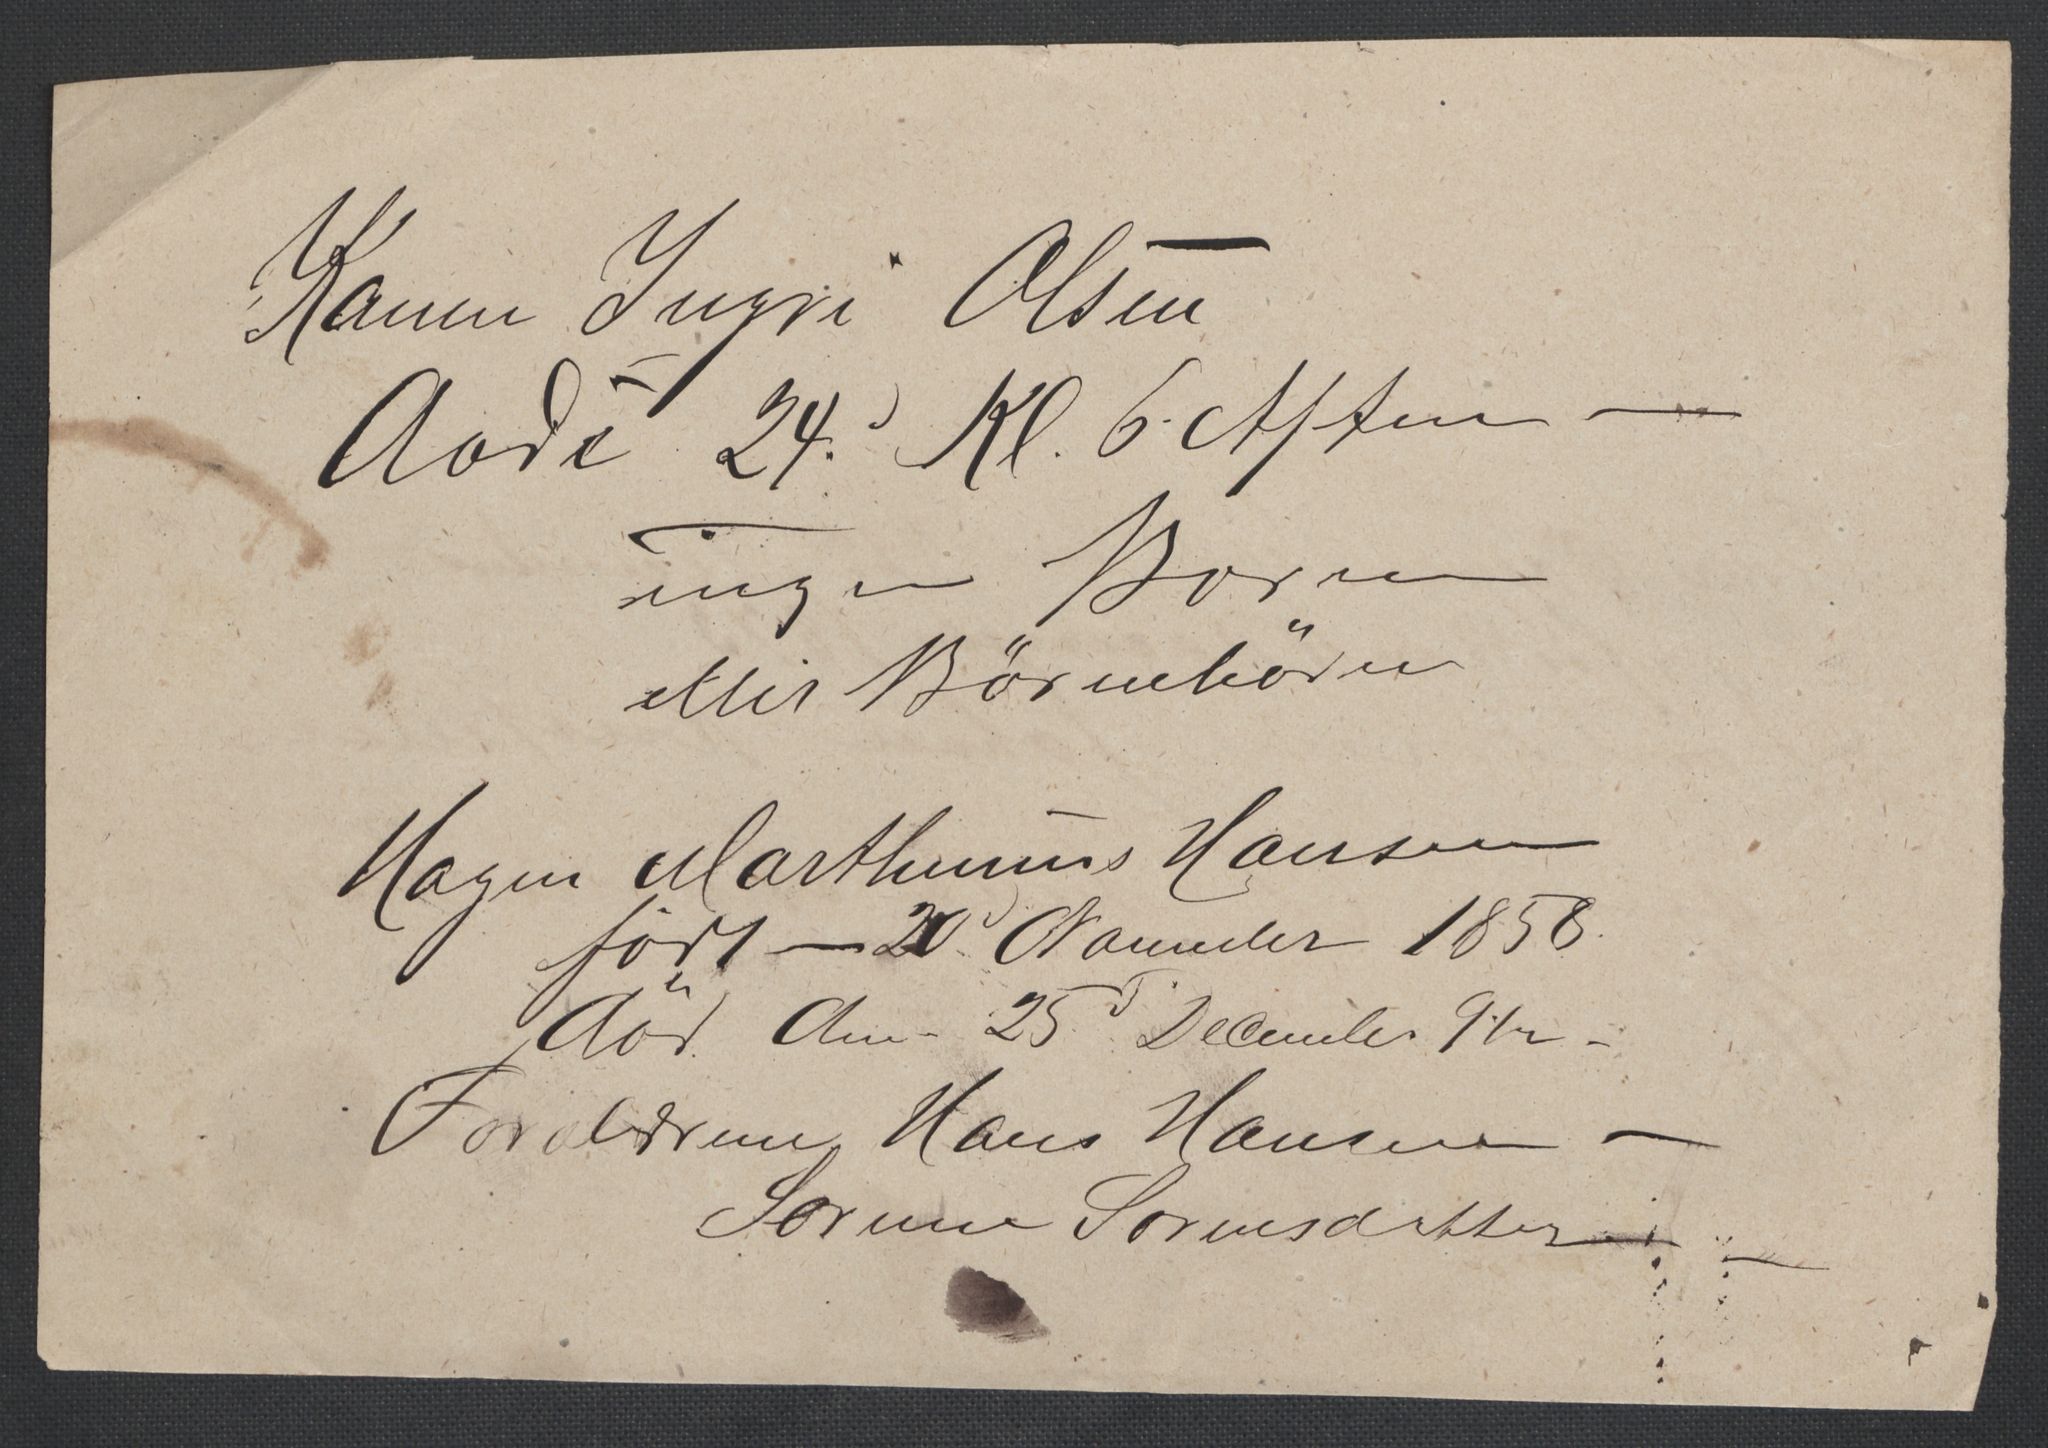 Karen Ingri Olsen
dode 24. Kl. 6 Aften
ingen Born
eller Börnebörn
Hagen Marthinius Hansen
född 20 November 1858.
död. den 25 December 91
Foraldrene Hans Hansen
Sorine Sorensdatter